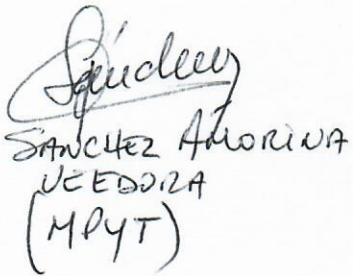 Sánchez
SANCHEZ AMORINA
VEEDORA
(MPYT)